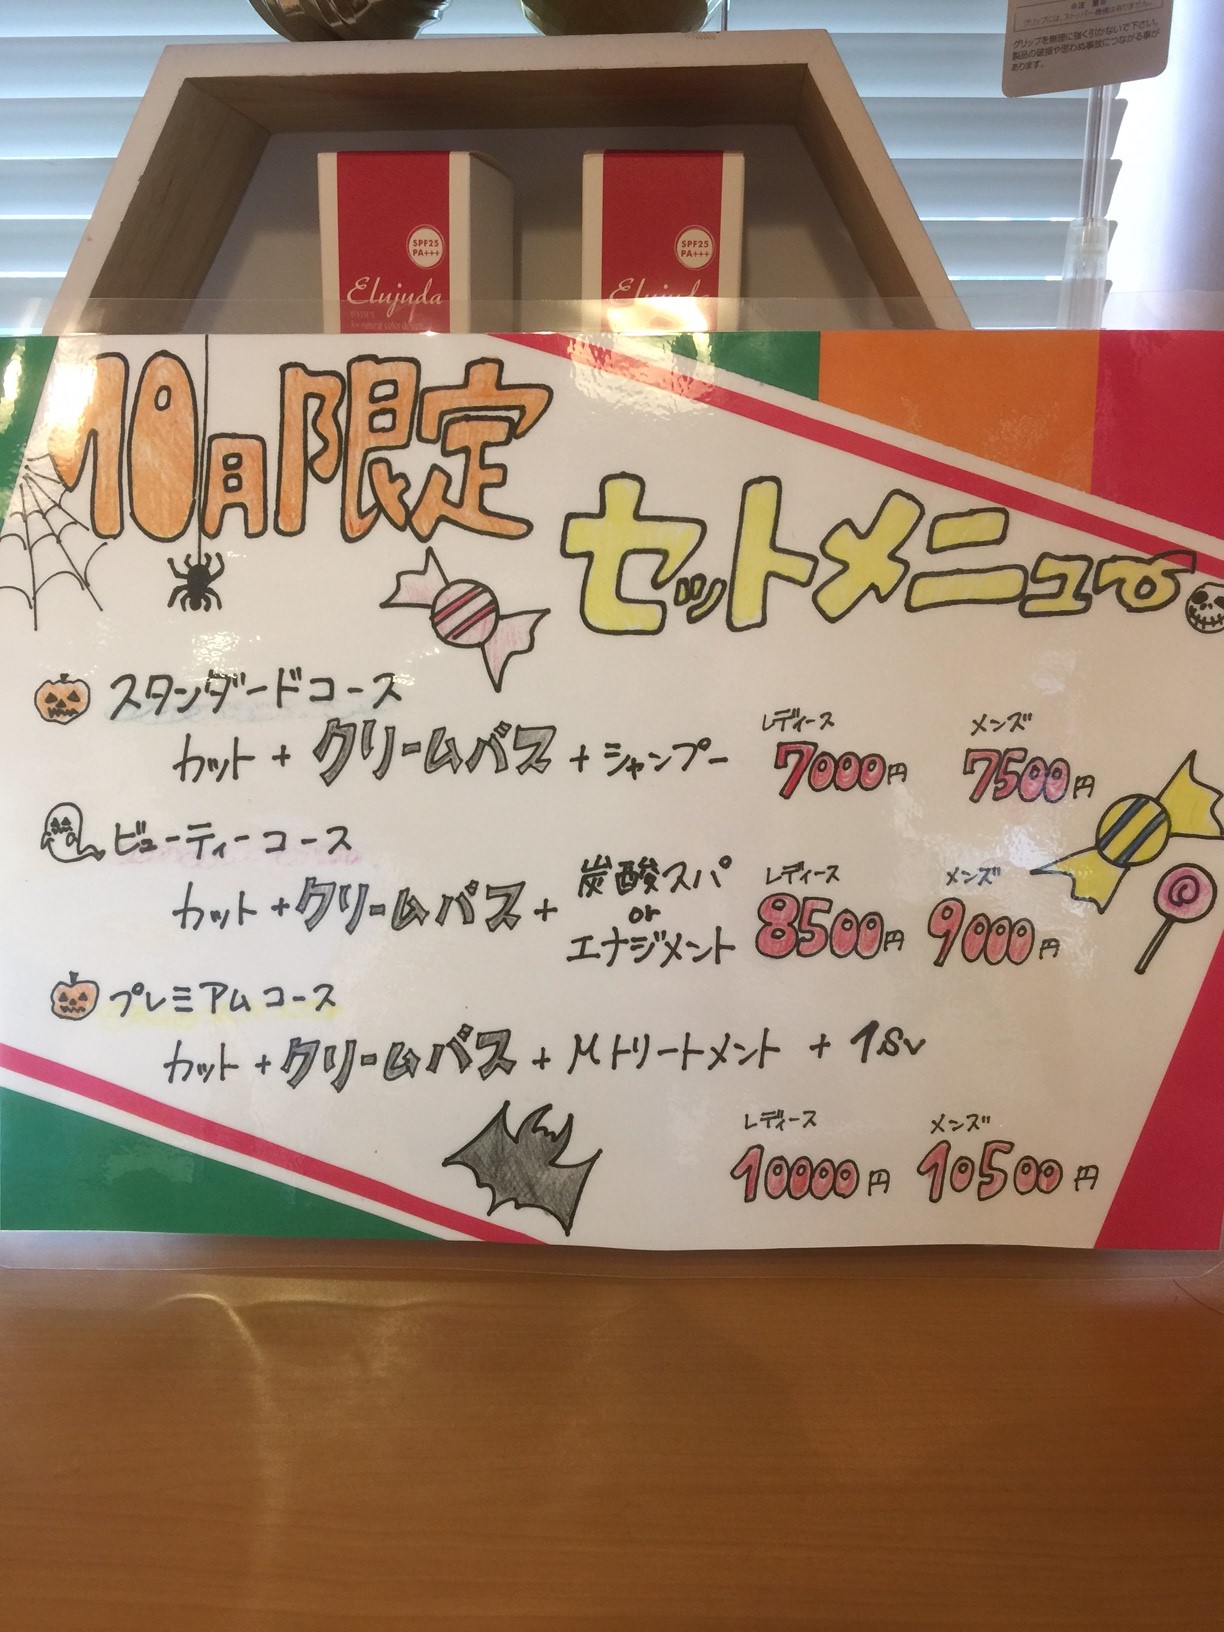 グリップを無理に強く引かないで下さい。
製品の破損や思わぬ事故につながる事が
あります。
SPF25
PA+++
SPF25
PA+++
Elujuda
Elujuda
10月限定
セットメニュー
スタンダードコース
レディース メンズ
カット + クリームバス + シャンプー 7000円 7500円
ビューティーコース
炭酸スパ レディース メンズ
カット + クリームバス + or 8500円 9000円
エナジメント
プレミアムコース
カット + クリームバス + Mトリートメント + 1Sv
レディース メンズ
10000円 10500円